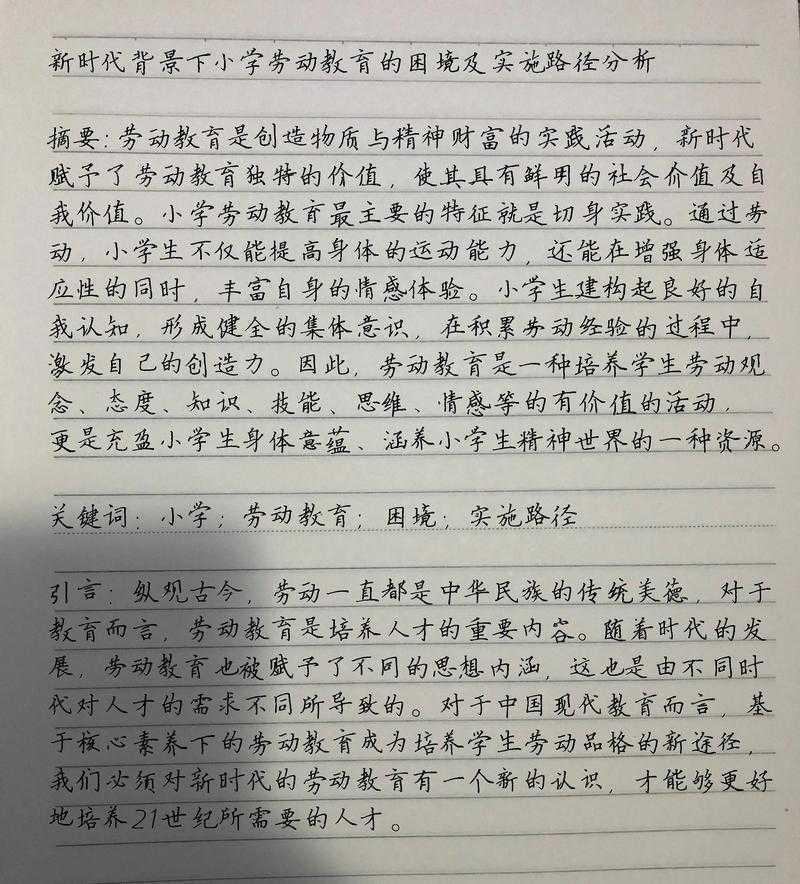 新时代背景下小学劳动教育的困境及实施路径分析
摘要:劳动教育是创造物质与精神财富的实践活动，新时代
赋予了劳动教育独特的价值，使其具有鲜用的社会价值及自
我价值。小学劳动教育最主要的特征就是切身实践。通过劳
动，小学生不仅能提高身体的运动能力，还能在增强身体适
应性的同时，丰富自身的情感体验。小学生建构起良好的自
我认知，形成健全的集体意识，在积累劳动经验的过程中，
激发自己的创造力。因此，劳动教育是一种培养学生劳动观
念、态度、知识、技能、思维、情感等的有价值的活动，
更是充盈小学生身体意蕴、涵养小学生精神世界的一种资源。
关键词：小学；劳动教育；困境；实施路径
引言：纵观古今，劳动一直都是中华民族的传统美德，对于
教育而言，劳动教育是培养人才的重要内容。随着时代的发
展，劳动教育也被赋予了不同的思想内涵，这也是由不同时
代对人才的需求不同所导致的。对于中国现代教育而言，基
于核心素养下的劳动教育成为培养学生劳动品格的新途径，
我们必须对新时代的劳动教育有一个新的认识，才能够更好
地培养21世纪所需要的人才。